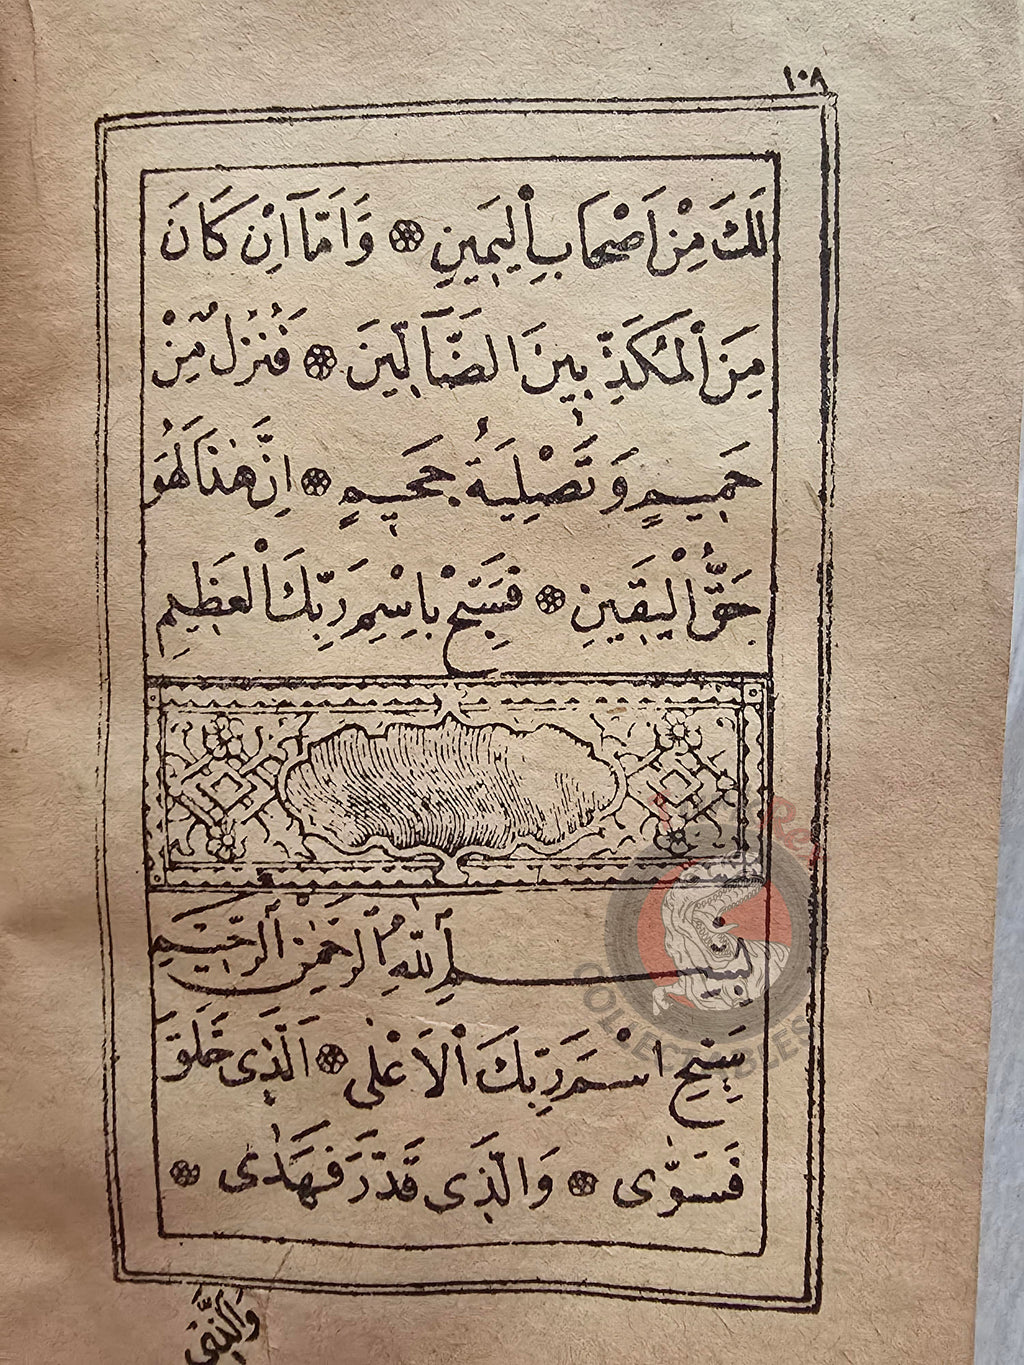 ١٠٨
لَكَ مِنْ اَصْحَابِ الْيَمَينِ ۞ وَاَمَّآ اِنْ كَانَ
مِنَ الْمُكَذِّبينَ الضَّآلّينَ ۞ فَنُزُلٌ مِنْ
حَميمٍ وَتَصْلِيَةُ جَحيمٍ ۞ اِنَّ هٰذَا لَهُوَ
حَقُّ الْيَقينِ ۞ فَسَبِّحْ بِاسْمِ رَبِّكَ الْعَظيمِ
بِسْمِ اللّٰهِ الرَّحْمٰنِ الرَّحيمِ
سَبِّحِ اسْمَ رَبِّكَ الْاَعْلٰى ۞ اَلَّذى خَلَقَ
فَسَوّٰى ۞ وَالَّذى قَدَّرَ فَهَدٰى ۞
وَالَّذى
COLLECTIBLES